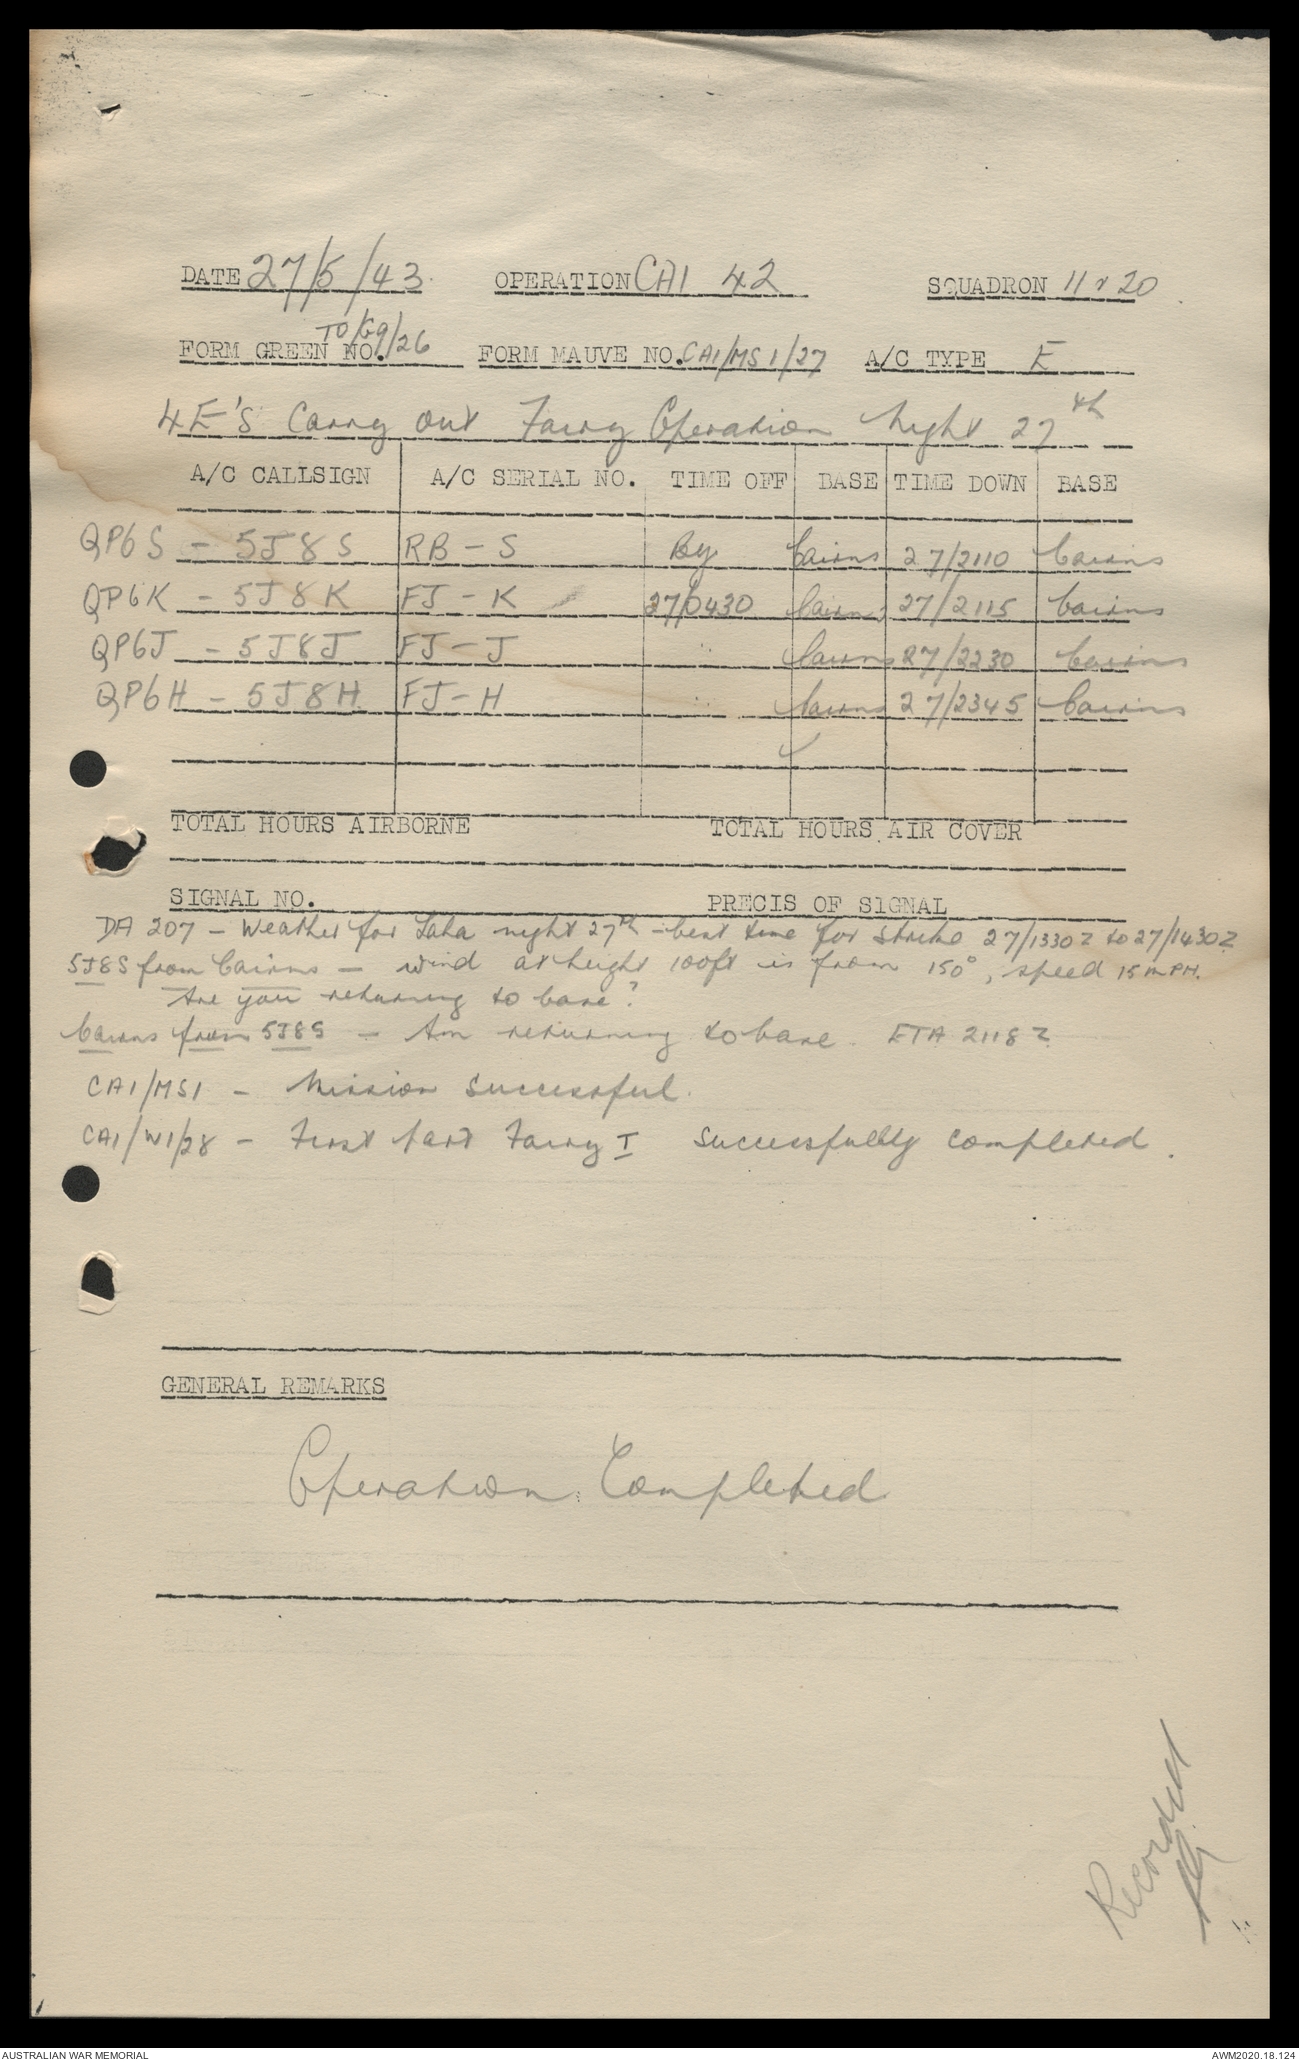 DATE 27/5/43 OPERATION CA1 42 SQUADRON 11 & 20
FORM GREEN NO. TO/G9/26 FORM MAUVE NO. CA1/MS1/27 A/C TYPE E
4 E's Carry out Fairy Operation night 27th
A/C CALLSIGN A/C SERIAL NO. TIME OFF BASE TIME DOWN BASE
QP6S - 5J8S RB - S By Cairns 27/2110 Cairns
QP6K - 5J8K FJ - K 27/0430 Cairns 27/2115 Cairns
QP6J - 5J8J FJ - J " Cairns 27/2230 Cairns
QP6H - 5J8H FJ - H " Cairns 27/2345 Cairns
TOTAL HOURS AIRBORNE TOTAL HOURS AIR COVER
SIGNAL NO. PRECIS OF SIGNAL
DA 207 - Weather for Laha night 27th - best time for strike 27/1330Z to 27/1430Z
5J8S from Cairns - wind at height 100ft is from 150°, speed 15 MPH.
Are you returning to base?
Cairns from 5J8S - Am returning to base. ETA 2118Z
CA1/MS1 - Mission successful.
CA1/W1/28 - First part Fairy I successfully completed.
GENERAL REMARKS
Operation Completed
Recorded
AUSTRALIAN WAR MEMORIAL AWM2020.18.124